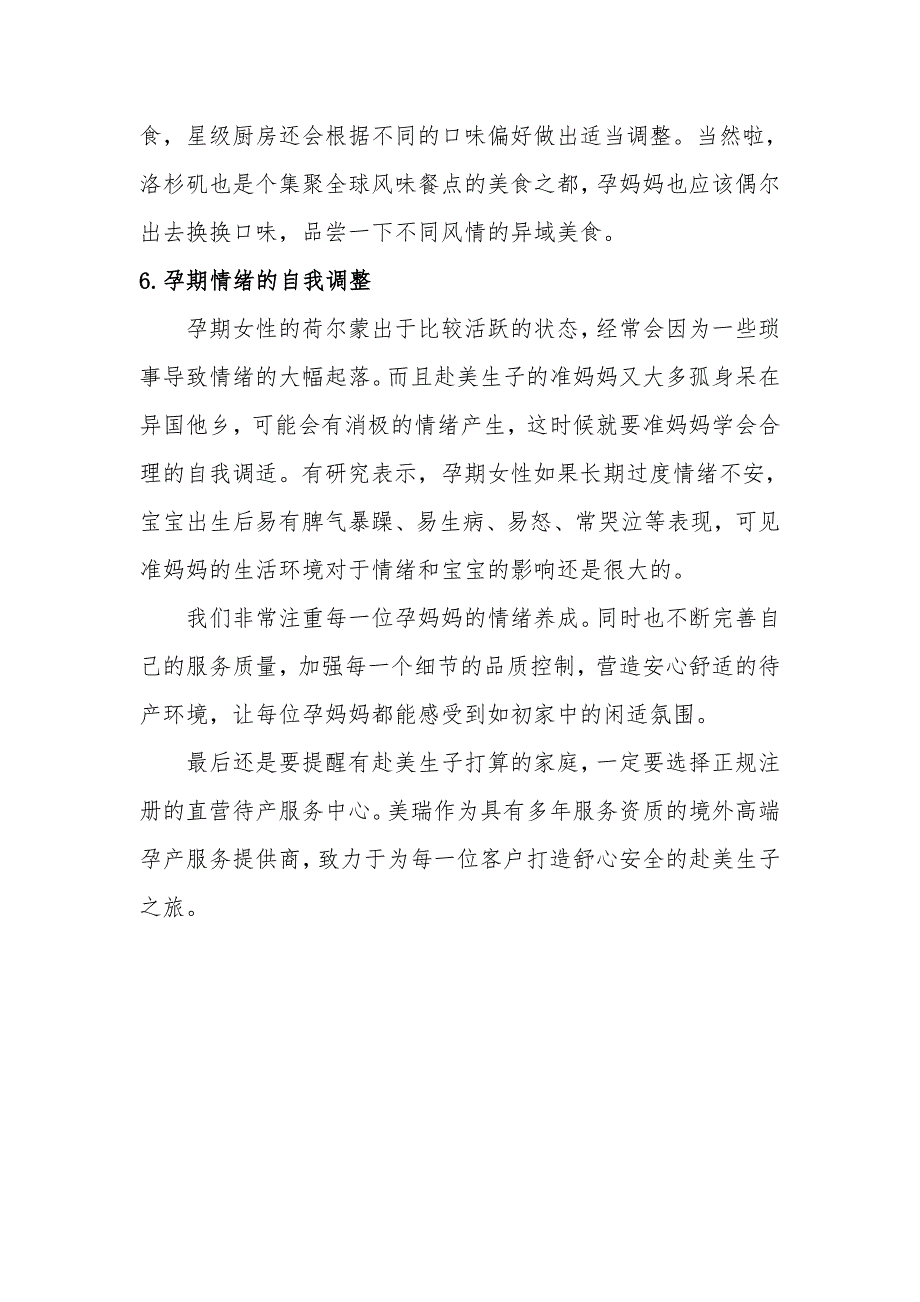 食，星级厨房还会根据不同的口味偏好做出适当调整。当然啦，
洛杉矶也是个集聚全球风味餐点的美食之都，孕妈妈也应该偶尔
出去换换口味，品尝一下不同风情的异域美食。
6.孕期情绪的自我调整
孕期女性的荷尔蒙出于比较活跃的状态，经常会因为一些琐
事导致情绪的大幅起落。而且赴美生子的准妈妈又大多孤身呆在
异国他乡，可能会有消极的情绪产生，这时候就要准妈妈学会合
理的自我调适。有研究表示，孕期女性如果长期过度情绪不安，
宝宝出生后易有脾气暴躁、易生病、易怒、常哭泣等表现，可见
准妈妈的生活环境对于情绪和宝宝的影响还是很大的。
我们非常注重每一位孕妈妈的情绪养成。同时也不断完善自
己的服务质量，加强每一个细节的品质控制，营造安心舒适的待
产环境，让每位孕妈妈都能感受到如初家中的闲适氛围。
最后还是要提醒有赴美生子打算的家庭，一定要选择正规注
册的直营待产服务中心。美瑞作为具有多年服务资质的境外高端
孕产服务提供商，致力于为每一位客户打造舒心安全的赴美生子
之旅。